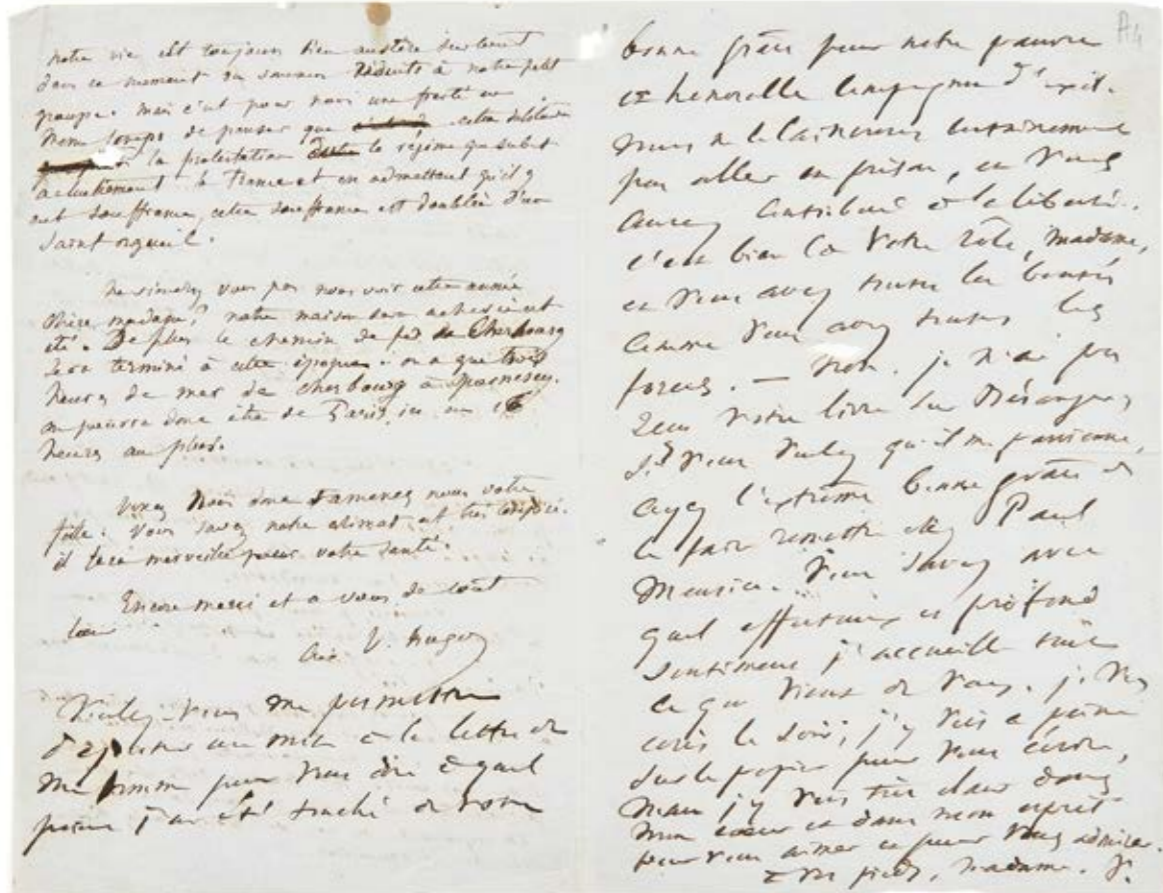 notre vie est toujours bien austère surtout
dans ce moment où sommes réduits à notre petit
groupe. mais c'est pour nous une fierté en
même temps de penser que cette solitude
la protestation le régime que subit
actuellement la France et en admettant qu'il y
ait souffrance, cette souffrance est doublée d'un
saint orgueil.
ne viendrez vous pas nous voir cette année
chère madame? notre maison sera achevée cet
été. De plus le chemin de fer de Cherbourg
sera terminé à cette époque. on a que trois
heures de mer de Cherbourg à Guernesey.
on pourra donc être de Paris ici en 16
heures au plus.
Venez donc & amenez nous votre
fille. Vous savez notre climat est très
il sera merveilleux pour votre santé.
Encore merci et a vous de tout
cœur
V. Hugo
Voulez-vous me permettre
d'ajouter un mot à la lettre de
ma femme pour vous dire à quel
point j'ai été touché de votre
A4
bonne grâce pour notre pauvre
et honorable compagne d'exil.
pour aller en prison, et vous
aurez contribué à la liberté.
c'est bien là votre rôle, madame,
et vous avez toutes les bontés
comme vous avez toutes les
forces. — Non. je n'ai pas
reçu votre livre sur Béranger,
si vous voulez qu'il me parvienne,
ayez l'extrême bonne grâce de
le faire remettre chez Paul
Meurice. Vous savez avec
quel affectueux et profond
sentiment j'accueille tout
ce qui vient de vous. je vous
écris le soir, j'y vois à peine
sur le papier pour vous écrire,
mais j'y vois très clair dans
mon cœur et dans mon esprit
pour vous aimer et pour vous admirer.
à vos pieds, madame. V.